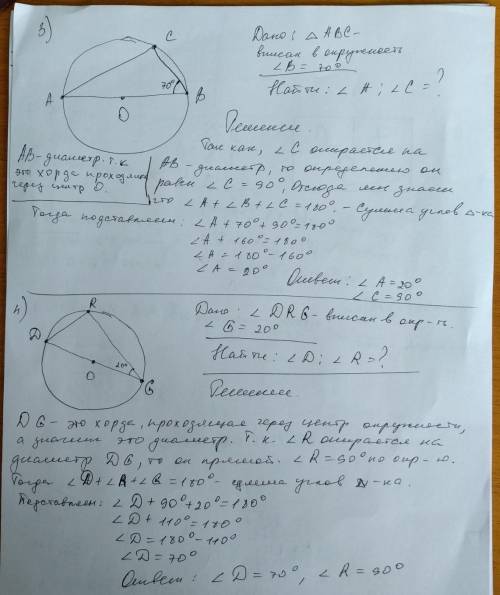 3)
C
A
B
O
70°
Дано: △ABC-
вписан в окружность
∠B = 70°
Найти: ∠A; ∠C = ?
Решение
AB-диаметр. т.к
это хорда проходящая
через центр O.
Так как, ∠C опирается на
AB-диаметр, то определению он
равен ∠C = 90°, Отсюда мы знаем
что ∠A+∠B+∠C=180°. - Сумма углов △-ка
Тогда подставляем: ∠A+70°+90°=180°
∠A + 160°=180°
∠A = 180°-160°
∠A = 20°
Ответ: ∠A = 20°
∠C = 90°
4)
R
D
O
20°
G
Дано: ∠DRG - вписан в окр-ть.
∠G = 20°
Найти: ∠D; ∠R = ?
Решение
DG - это хорда, проходящая через центр окружности,
а значит это диаметр. Т.к. ∠R опирается на
диаметр DG, то он прямой. ∠R = 90° по опр-ю.
Тогда ∠D+∠R+∠G=180°- сумма углов △-ка.
Подставляем: ∠D+90°+20°=180°
∠D + 110°=180°
∠D = 180°-110°
∠D = 70°
Ответ: ∠D = 70°, ∠R = 90°